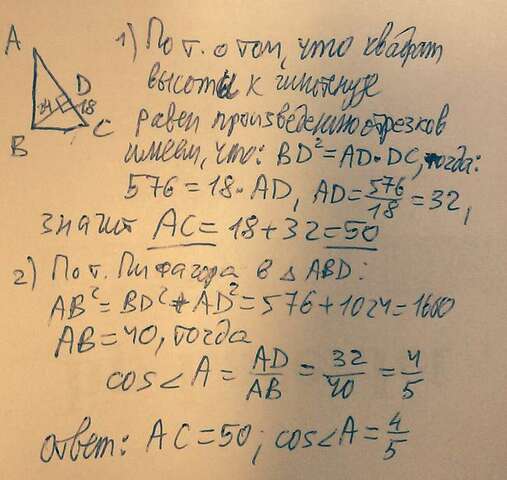 A
D
24
18
B
C
1) По т. о том, что квадрат
высоты к гипотенузе
равен произведению отрезков
имеем, что: BD² = AD · DC, тогда:
576 = 18 · AD, AD = 576/18 = 32,
значит AC = 18 + 32 = 50
2) По т. Пифагора в △ ABD:
AB² = BD² + AD² = 576 + 1024 = 1600
AB = 40, тогда
cos∠A = AD/AB = 32/40 = 4/5
ответ: AC = 50; cos∠A = 4/5